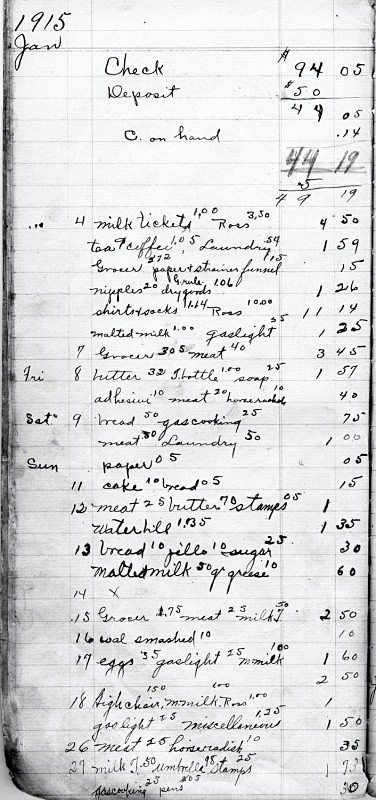 1915
Jan
Check $94 05
Deposit $50
44 05
C. on hand .14
44 19
5
49 19
4 milk tickets 1,00 Ross 3,50 4 50
tea & coffee 1,05 Laundry 54 1 59
Grocer 372 paper & strainer funnel 15 15
nipples 20 dry goods 106 1 26
shirts & socks 1.14 Ross 10.00 11 14
malted milk 1.00 gaslight 25 1 25
7 Grocer 305 meat 40 3 45
Fri 8 butter 32 T. bottle 1.00 soap 25 1 57
adhesive 10 meat 20 horseradish 10 40
Sat. 9 bread 50 gas cooking 25 75
meat 50 Laundry 50 1 00
Sun paper 05 05
11 cake 10 bread 05 15
12 meat 25 butter 70 stamps 05 1
Water bill 1.35 1 35
13 bread 10 jello 10 sugar 25 30
Malted milk 50 grease 10 60
14 X
15 Grocer 1.75 meat 25 milk T 50 2 50
16 coal smashed 10 10
17 eggs 35 gaslight 25 M milk 1 00 1 60
2 50
18 High chair 150 M. milk 1 00 Ross 1.00 1
gas light 25 miscellaneous 1.25 1 50
26 meat 25 horseradish 10 35
27 milk T. 50 umbrella 98 stamps 25 1 73
gas cooking 25 pens 05 30